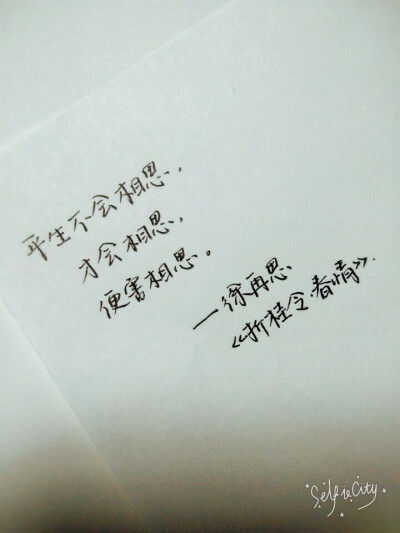 平生不会相思，
才会相思，
便害相思。
—徐再思
《折桂令·春情》.
Selfie City